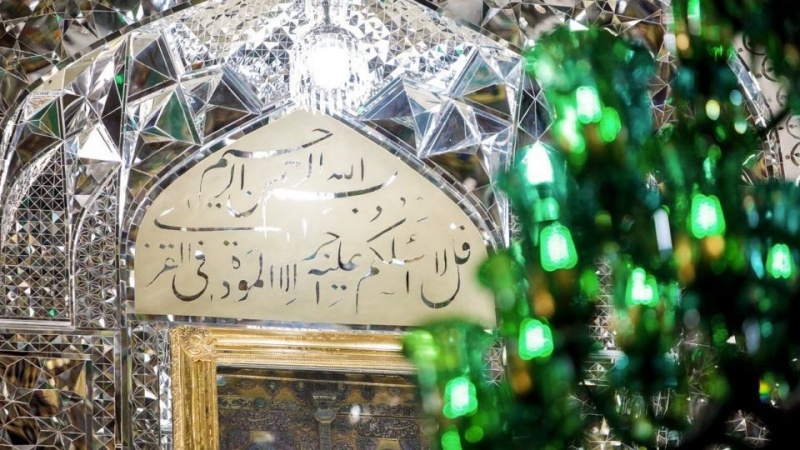 بسم الله الرحمن الرحیم
قل لا اسئلکم علیه اجرا الا المودة فی القربی